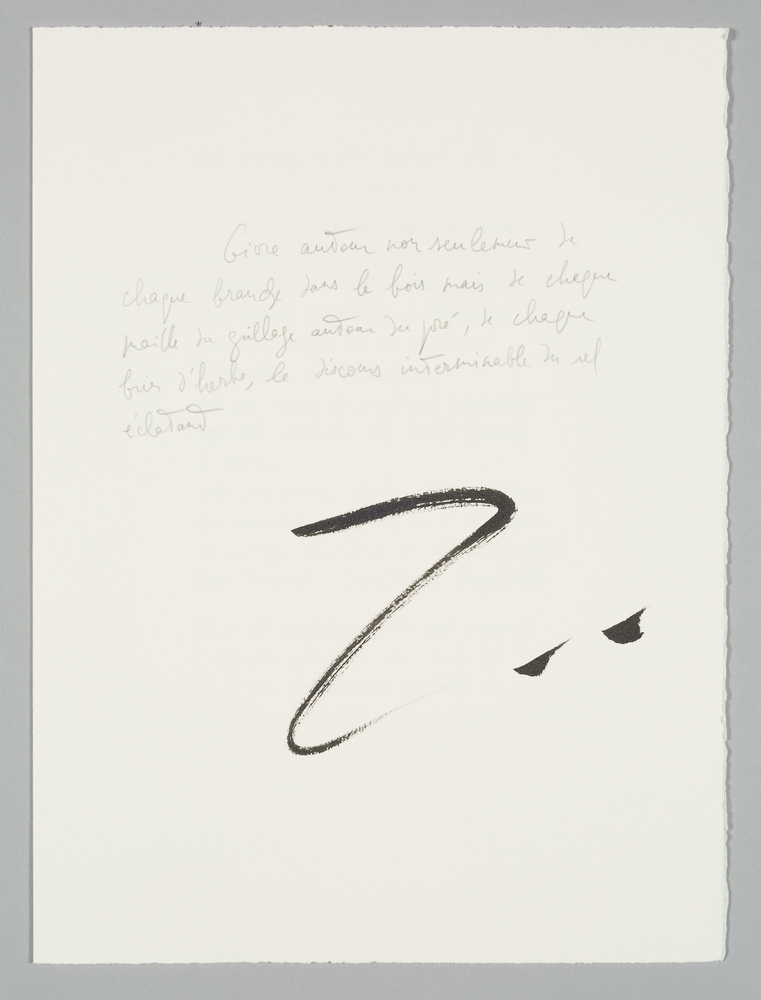 Givre autour non seulement de
chaque branche dans le bois mais de chaque
paille du grillage autour du pré, de chaque
brin d'herbe, le discours interminable du sel
éclatant.